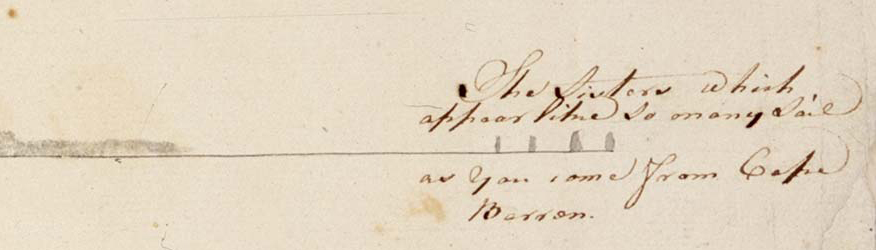 The Sisters which
appear like so many Sail
as you come from Cape
Barren.